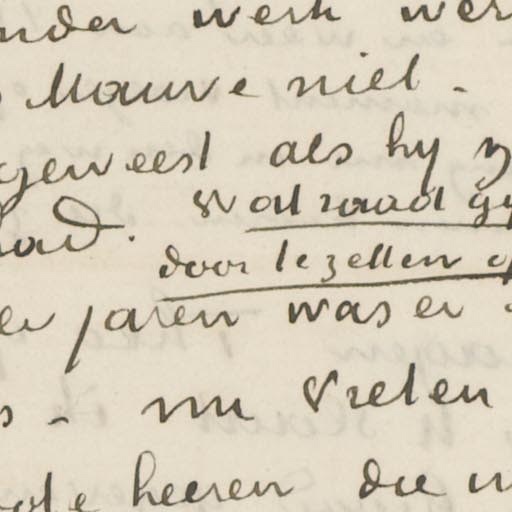 nder werk wer
Mauve niet -
geweest als hy z
had. Wat raad gy
door te zetten o
er jaren was er
s - nu Vreten
ote heeren die